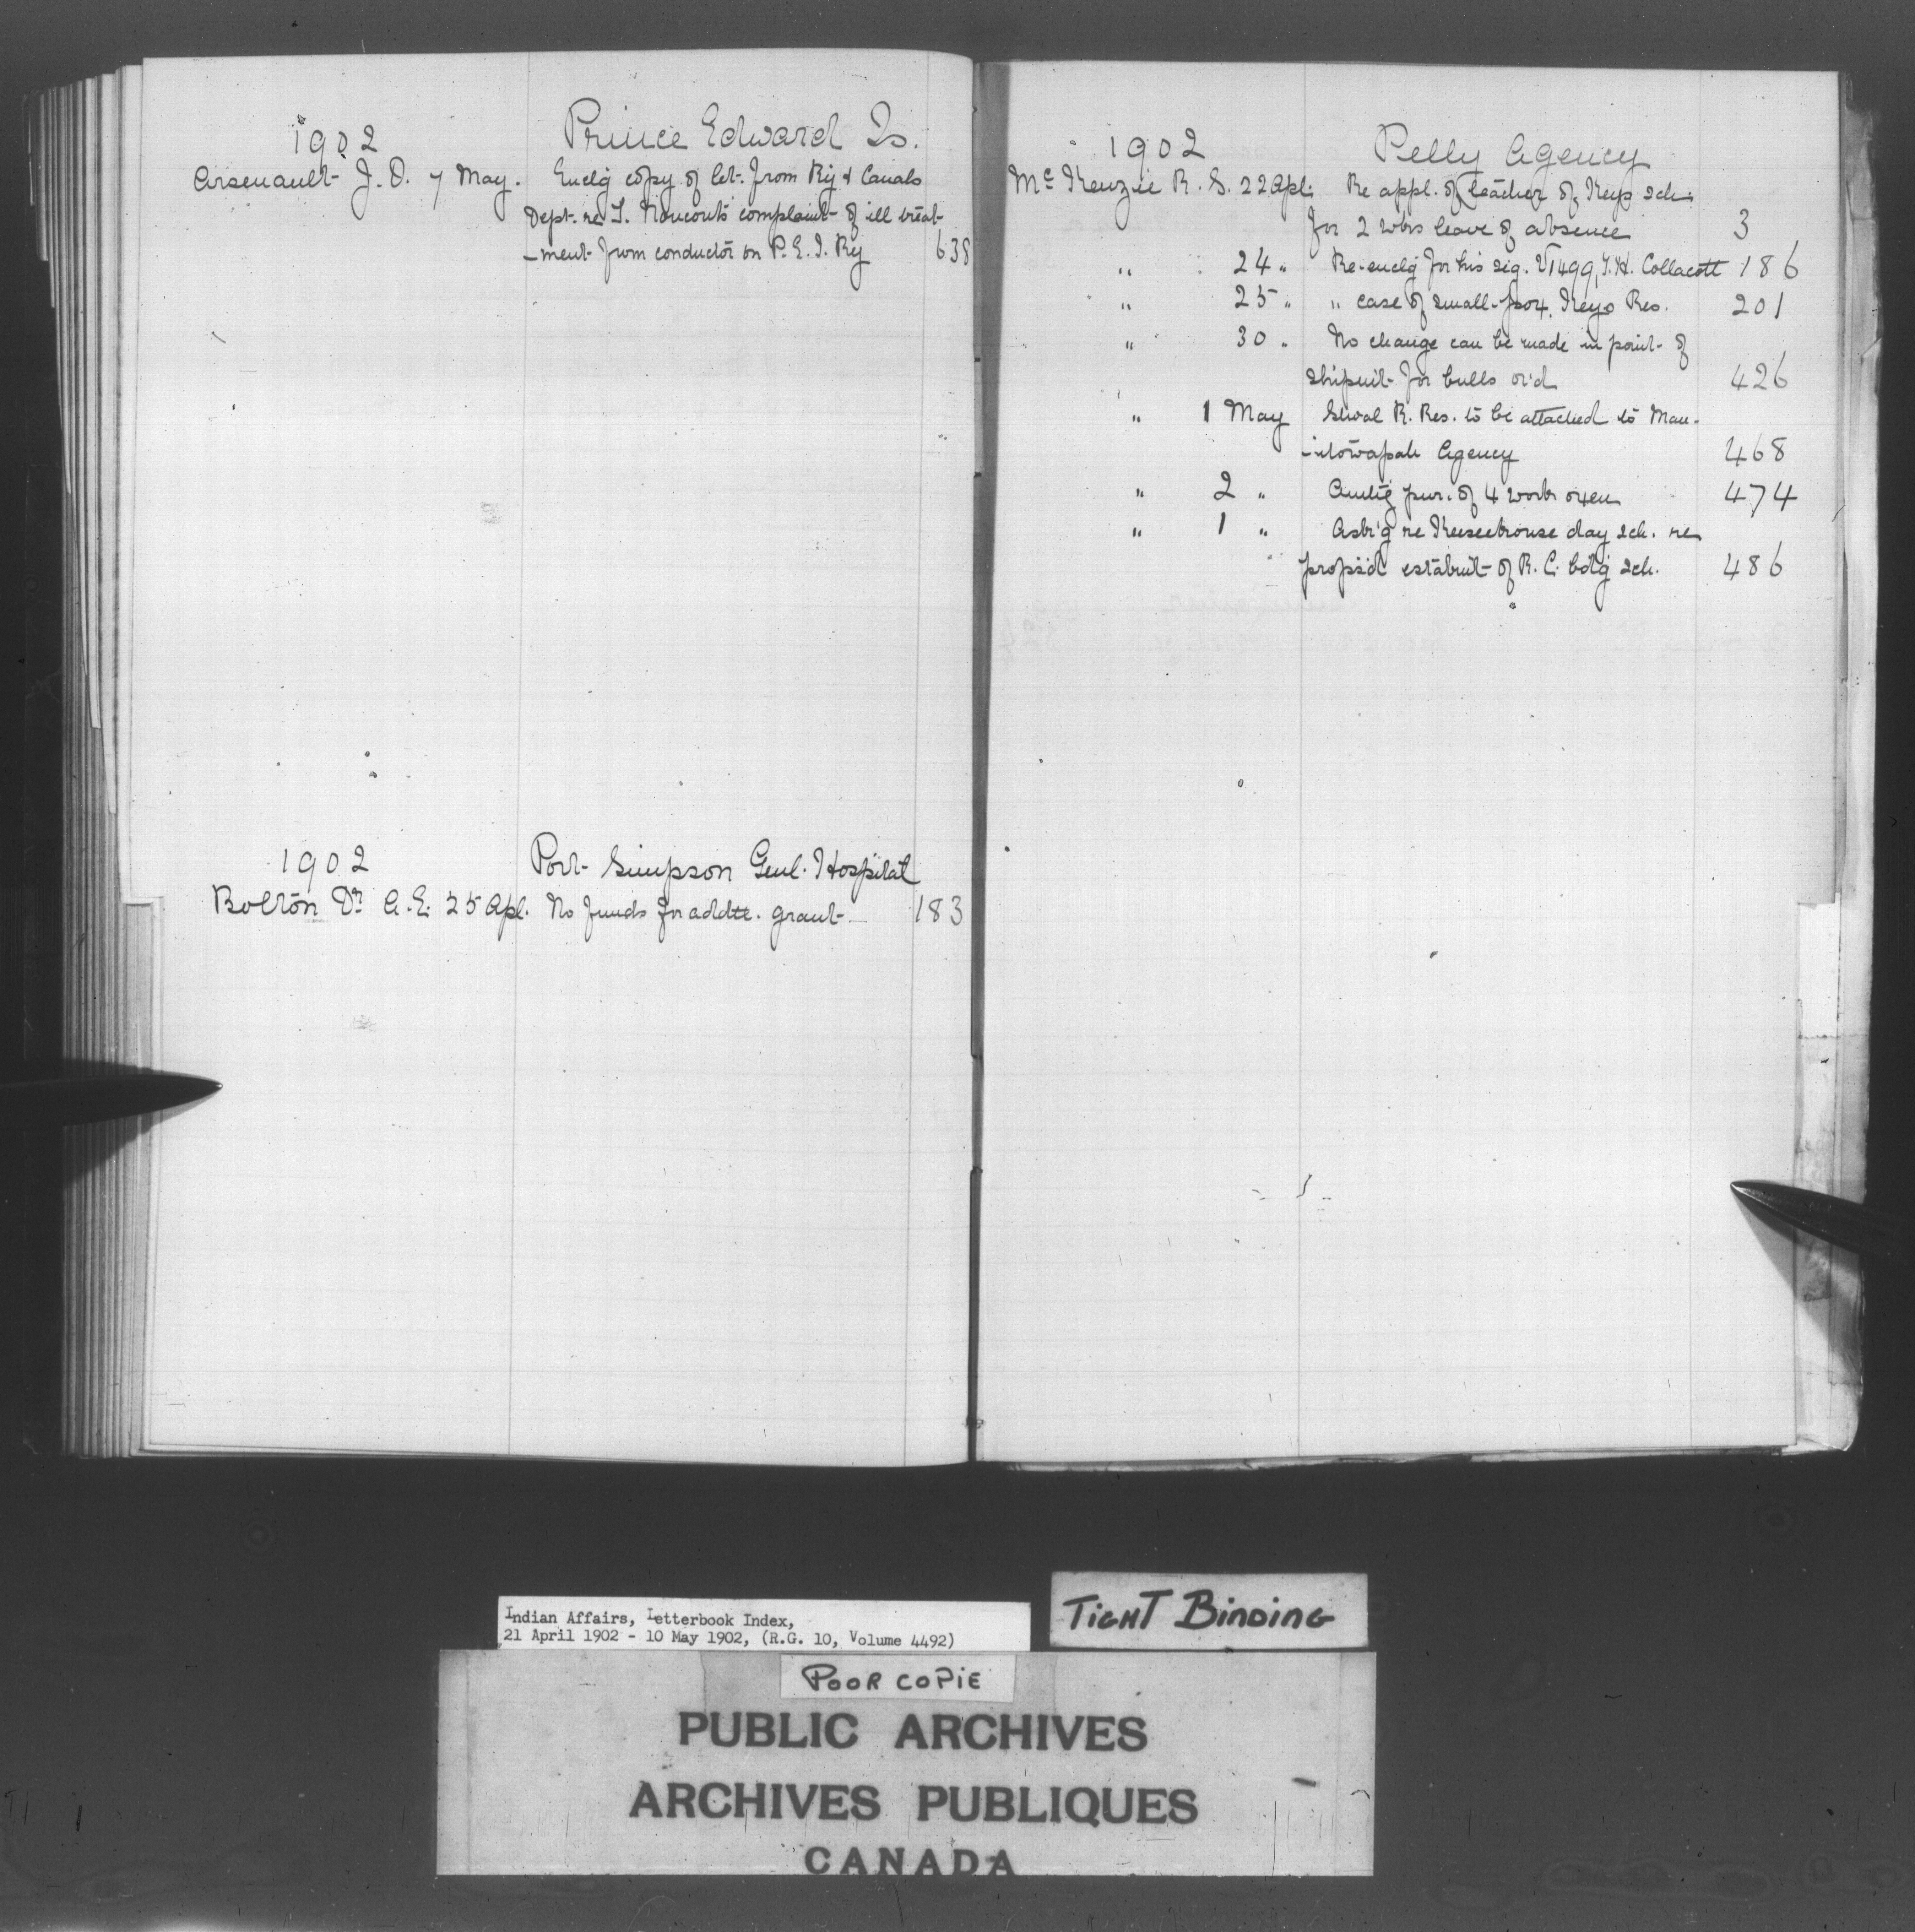 1902 Prince Edward Is.
Arsenault J. O. 7 May. Enclg copy of let. from Ry & Canals
Dept. re complaint of ill treat-
-ment from conductor on P. E. I. Ry 638
1902 Port Simpson Genl. Hospital
Bolton Dr A. E. 25 Apl. No funds for addtl. grant 183
1902 Pelly Agency
McKenzie R. S. 22 Apl. Re appl. of teacher of Keys sch.
for 2 wks leave of absence 3
" 24 " Re-enclg for his sig. V1499, Collacott 186
" 25 " " case of small-pox, Keys Res. 201
" 30 " No change can be made in point of
shipmt for bulls or'd 426
" 1 May Shoal R. Res. to be attached to Man-
-itowapah Agency 468
" 2 " Authg pur. of 4 work oxen 474
" 1 " Ask'g re Keeseekouse day sch. re
propsd establmt of R. C. bdg sch. 486
Indian Affairs, Letterbook Index,
21 April 1902 - 10 May 1902, (R.G. 10, Volume 4492)
TIGHT BINDING
POOR COPIE
PUBLIC ARCHIVES
ARCHIVES PUBLIQUES
CANADA